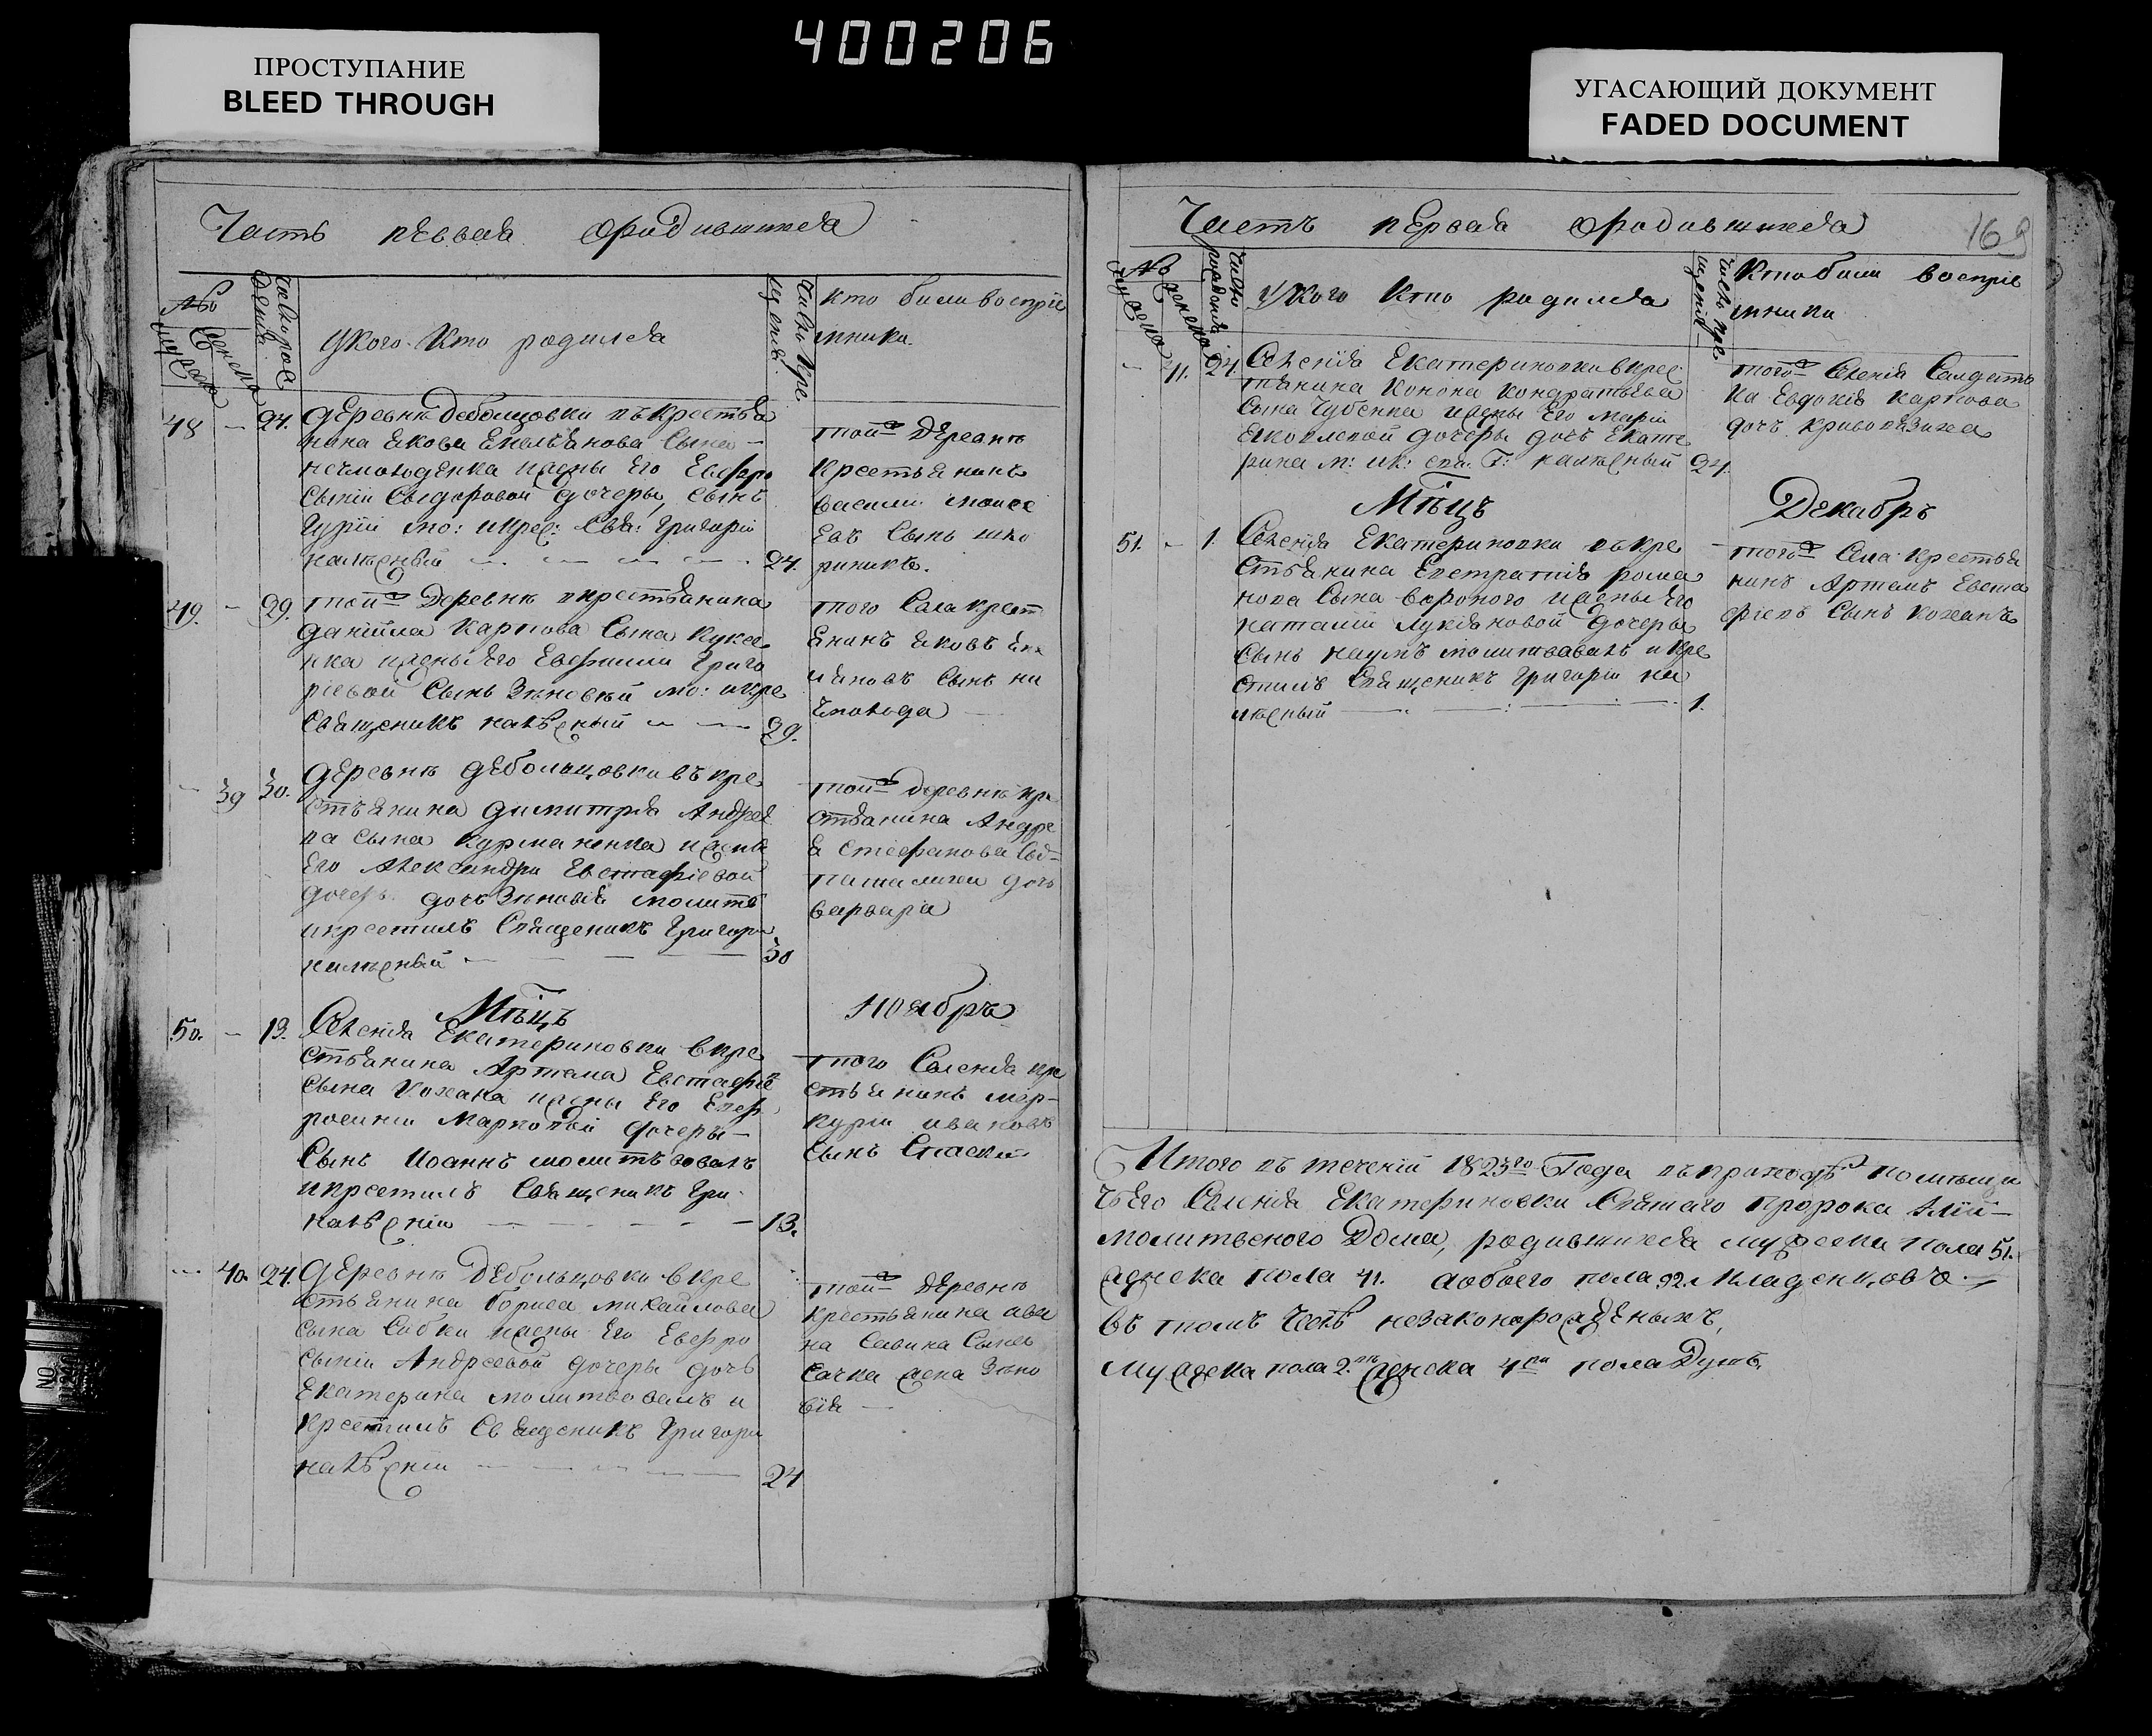 400206
ПРОСТУПАНИЕ
BLEED THROUGH
УГАСАЮЩИЙ ДОКУМЕНТ
FADED DOCUMENT
Часть первая ородившихся
№
мужеска
женска
Число рож
дения
Укого кто родился
Число кре
щения
кто были воспріе
мники
48 – 24. деревнѣ Дебольцовки въ крестья
нина Якова Емельянова сына –
жены Его Евфро
сыніи Сыдоровой дочеры, сынъ
Гурій мо: икрес: Свя: Григорій
– – – – 24.
той Деревнѣ
крестьянинъ
василій
Евъ сынъ
49. – 29. той Деревнѣ вкрестьянина
данійла Карпова сына
жены Его Евфиміи Григо
ріевой сынъ Зѣновѣй мо: икре
Священикъ – – 29.
того села крест
янинъ яковъ
сынъ
– 39 30. деревнѣ дебольцовки въ кре
стьянина димитрія Андрее
ва сына Курманенка жены
Его Александри Евстафіевой
дочеры дочь Зѣновія молитв
икрестилъ Священикъ Григорій
– – – – 30
той Деревнѣ кре
стьянина Андре
я Стефанова
дочь
варвара
Мѣцъ Ноябръ
50. – 13. Селенія Екатериновки вкре
стьянина Артема Евстафіе
сына Кохана жены Его Евф
росиніи Марковой дочеры –
Сынъ Иоаннъ молитвовалъ
икрестилъ Священикъ Гри
– – – – 13.
того Селенія кре
стьянинъ мер-
курій ивановъ
сынъ Спаский
– 40. 24. Деревнѣ Дебольцовки вкре
стьянина бориса михайлова
сына Сабки жены Его Евфро
сыніи Андреевой дочеры дочь
Екатерина молитвовалъ и
крестилъ Священикъ Григорій
– – – – 24
той Деревнѣ
крестьянина ива
на Савина сына
Сачка жена Зѣно
вія –
Часть первая ородившихся 169
№
мужеска
женска
Число
рождения
Укого кто родился
Число кре
щения
Кто были воспріе
мники
– 41. 24. Селенія Екатериновки вкрес
тьянина Конона Кондратьева
сына Чубенка жены Его маріи
Яковлевой дочеры дочь Екате
рина м: ик: свя. Г: 24.
того Селенія Салдатъ
ка Евдокія карпова
дочь
Мѣцъ Декабръ
51. – 1. Селенія Екатериновки въ кре
стьянина Евстратія рома
нова сына вороного жены Его
наталіи лукьяновой дочеры
сынъ наумъ молитвовалъ икре
стилъ Священикъ Григорій
– – – 1.
того села крестья
нинъ Артемъ Евста
фіевъ сынъ Коханъ
Итого въ теченій 1823го Года въ приходѣ помѣщи
чьего Селенія Екатериновки Святаго Пророка Иліи –
молитвеного Дома, родившихся мужеска пола 51.
женска пола 41. а обоего пола 92. младенцовъ. –
въ томъ числѣ незаконорожденыхъ,
мужеска пола 2. женска 4 пола Душъ.